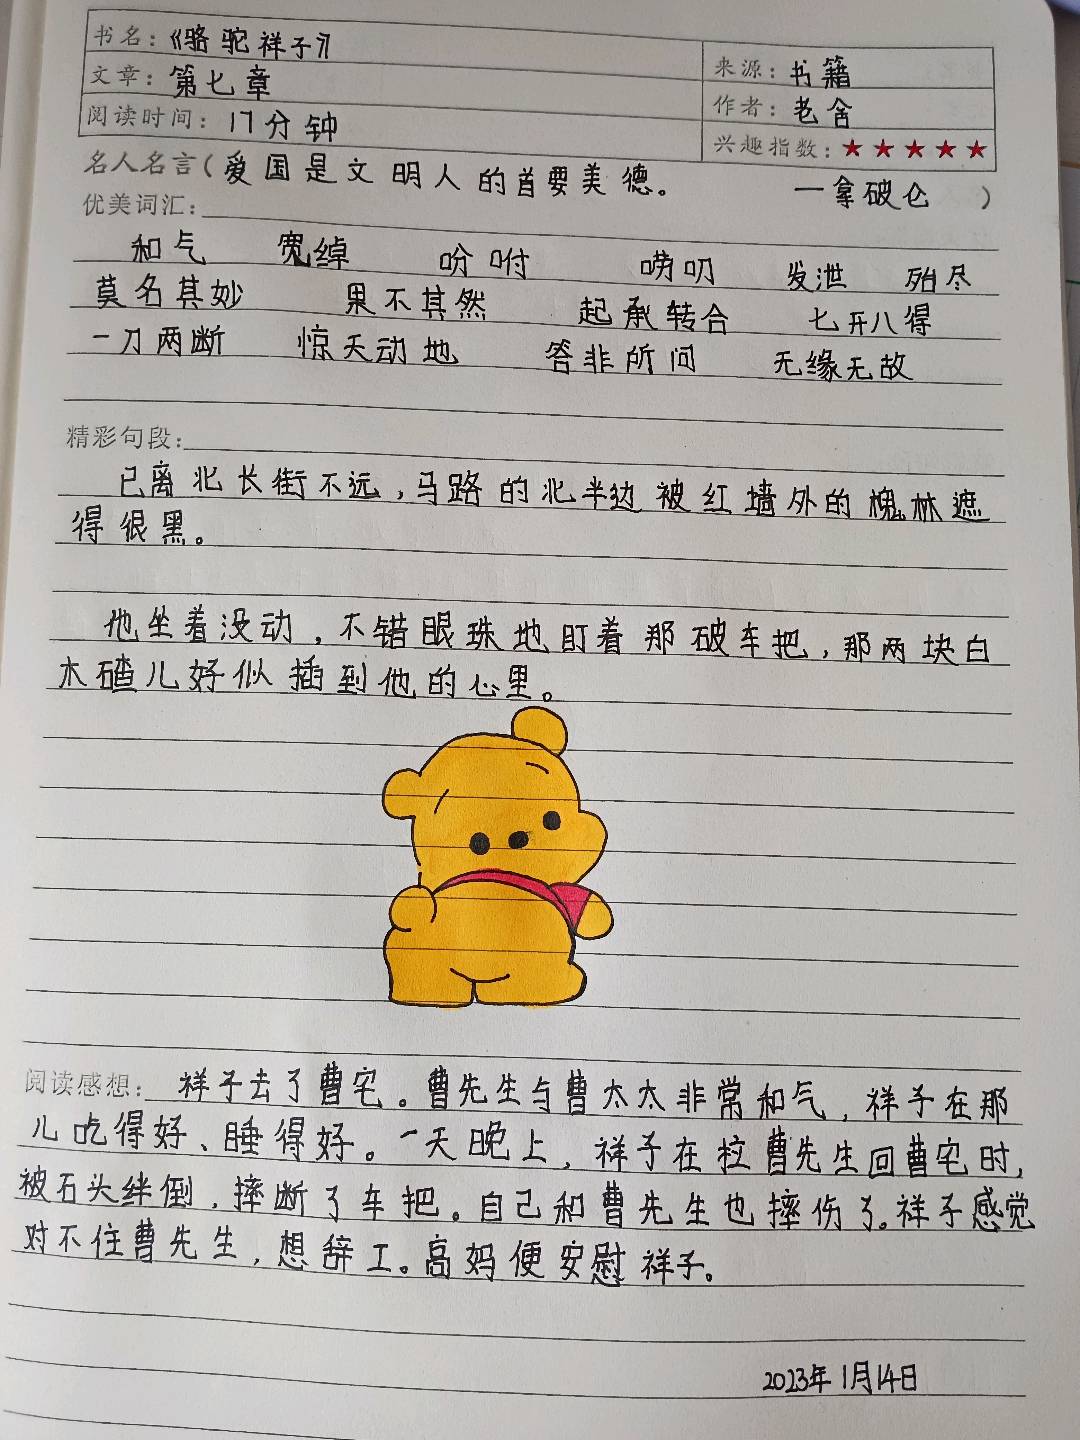 书名：《骆驼祥子》
来源：书籍
文章：第七章
作者：老舍
阅读时间：17分钟
兴趣指数：★★★★★
名人名言（爱国是文明人的首要美德。 —拿破仑 ）
优美词汇：
和气 宽绰 吩咐 唠叨 发泄 殆尽
莫名其妙 果不其然 起承转合 七开八得
一刀两断 惊天动地 答非所问 无缘无故
精彩句段：
已离北长街不远，马路的北半边被红墙外的槐林遮
得很黑。
他坐着没动，不错眼珠地盯着那破车把，那两块白
木碴儿好似插到他的心里。
阅读感想：祥子去了曹宅。曹先生与曹太太非常和气，祥子在那
儿吃得好、睡得好。一天晚上，祥子在拉曹先生回曹宅时，
被石头绊倒，摔断了车把。自己和曹先生也摔伤了。祥子感觉
对不住曹先生，想辞工。高妈便安慰祥子。
2023年1月14日